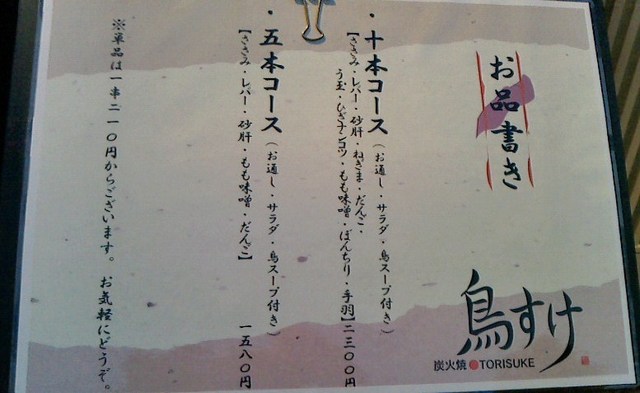 お品書き
鳥すけ
炭火焼●TORISUKE
・十本コース（お通し・サラダ・鳥スープ付き）
【ささみ・レバー・砂肝・ねぎま・だんご・
う玉・ひざナンコツ・もも味噌・ぼんちり・手羽】二三〇〇円
・五本コース（お通し・サラダ・鳥スープ付き）
【ささみ・レバー・砂肝・もも味噌・だんご】 一五八〇円
※単品は一串二一〇円からございます。 お気軽にどうぞ。